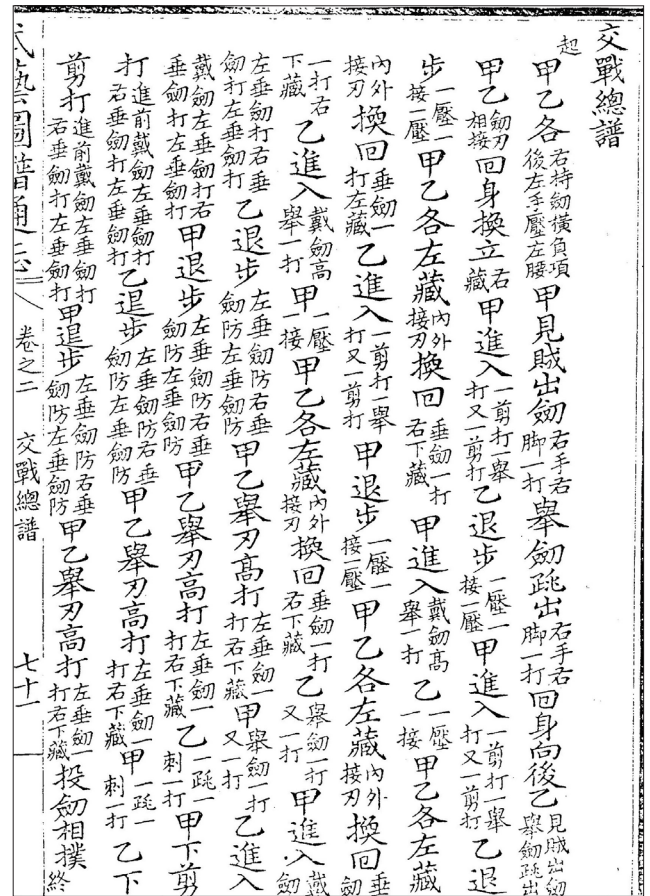 交戰總譜
起甲乙各右持劒橫負項後左手壓左腰甲見賊出劒右手右脚一打舉劒跳出右手右脚一打回身向後乙見賊出劒舉劒跳出
甲乙劒刃相接回身換立右藏甲進入一剪打一舉打又一剪打乙退步一壓一接一壓甲進入一剪打一舉打又一剪打乙退
步一壓一接一壓甲乙各左藏內外接刃換回垂劒一打右下藏甲進入戴劒高舉一打乙一壓一接甲乙各左藏
內外接刃換回垂劒一打左藏乙進入一剪打一舉打又一剪打甲退步一壓一接一壓甲乙各左藏內外接刃換回垂劒
一打右下藏乙進入戴劒高舉一打甲一壓一接甲乙各左藏內外接刃換回垂劒一打右下藏乙舉劒一打又一打甲進入戴劒
左垂劒打右垂劒打左垂劒打乙退步左垂劒防右垂劒防左垂劒防甲乙舉刃高打左垂劒一打右下藏甲舉劒一打又一打乙進入
戴劒左垂劒打右垂劒打左垂劒打甲退步左垂劒防右垂劒防左垂劒防甲乙舉刃高打左垂劒一打右下藏乙一跳一刺一打甲下剪
打進前戴劒左垂劒打右垂劒打左垂劒打乙退步左垂劒防右垂劒防左垂劒防甲乙舉刃高打左垂劒一打右下藏甲一跳一刺一打乙下
剪打進前戴劒左垂劒打右垂劒打左垂劒打甲退步左垂劒防右垂劒防左垂劒防甲乙舉刃高打左垂劒一打右下藏投劒相撲終
武藝圖譜通志 卷之二 交戰總譜 七十一